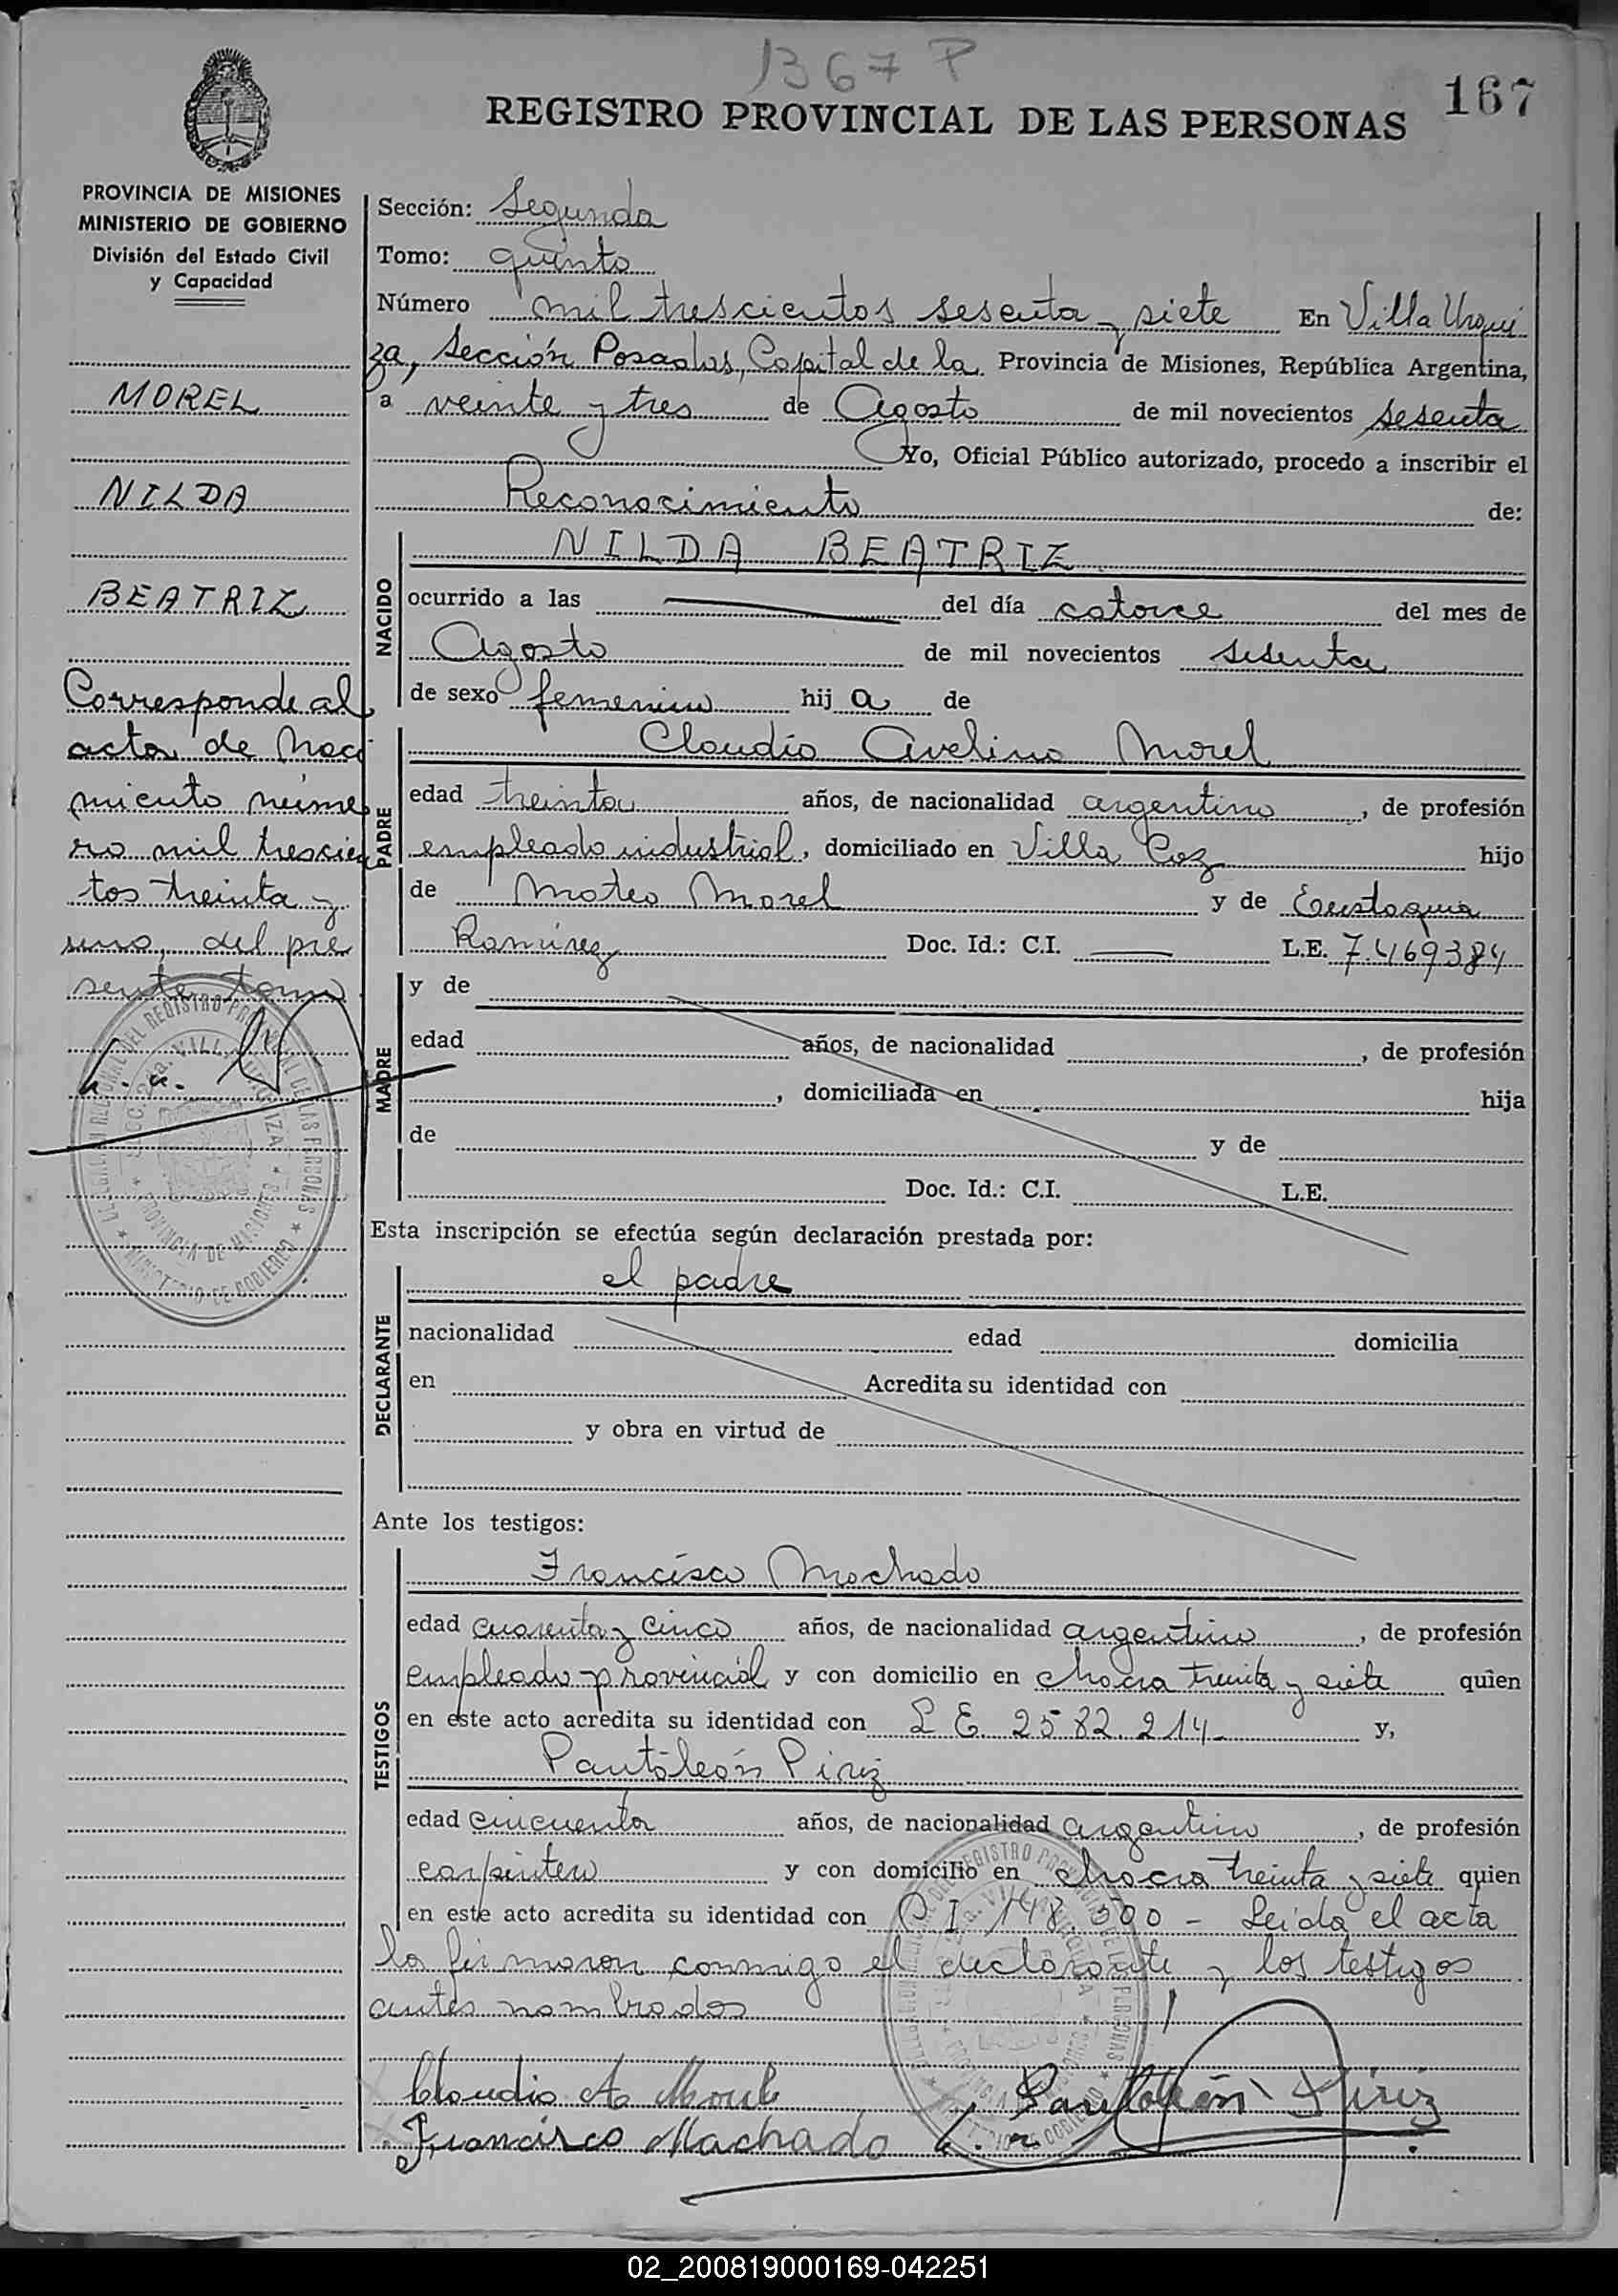 1367 P
167
REGISTRO PROVINCIAL DE LAS PERSONAS
PROVINCIA DE MISIONES
MINISTERIO DE GOBIERNO
División del Estado Civil
y Capacidad
MOREL
NILDA
BEATRIZ
Corresponde al
acta de Naci
miento núme
ro mil trescien
tos treinta y
uno, del pre
sente tomo
Sección: Segunda
Tomo: quinto
Número mil trescientos sesenta y siete En Villa Urqui
za, Sección Posadas, Capital de la Provincia de Misiones, República Argentina,
a veinte y tres de Agosto de mil novecientos sesenta
Yo, Oficial Público autorizado, procedo a inscribir el
Reconocimiento de:
NACIDO
NILDA BEATRIZ
ocurrido a las del día catorce del mes de
Agosto de mil novecientos sesenta
de sexo femenino hij a de
PADRE
Claudio Avelino Morel
edad treinta años, de nacionalidad argentino, de profesión
empleado industrial, domiciliado en Villa Coz hijo
de Mateo Morel y de Eustaquia
Ramírez Doc. Id.: C.I. L.E. 7.469384
MADRE
y de
edad años, de nacionalidad , de profesión
, domiciliada en hija
de y de
Doc. Id.: C.I. L.E.
Esta inscripción se efectúa según declaración prestada por:
DECLARANTE
el padre
nacionalidad edad domicilia
en Acredita su identidad con
y obra en virtud de
Ante los testigos:
TESTIGOS
Francisco Machado
edad cuarenta y cinco años, de nacionalidad argentino, de profesión
empleado provincial y con domicilio en chacra treinta y siete quien
en este acto acredita su identidad con L E 2582.214 y,
Pantaleón Piriz
edad cincuenta años, de nacionalidad argentino, de profesión
carpintero y con domicilio en chacra treinta y siete quien
en este acto acredita su identidad con C I 148.500 - Leida el acta
la firmaron conmigo el declarante y los testigos
antes nombrados
Claudio A Morel
Pantaleón Piriz
Francisco Machado
02_200819000169-042251